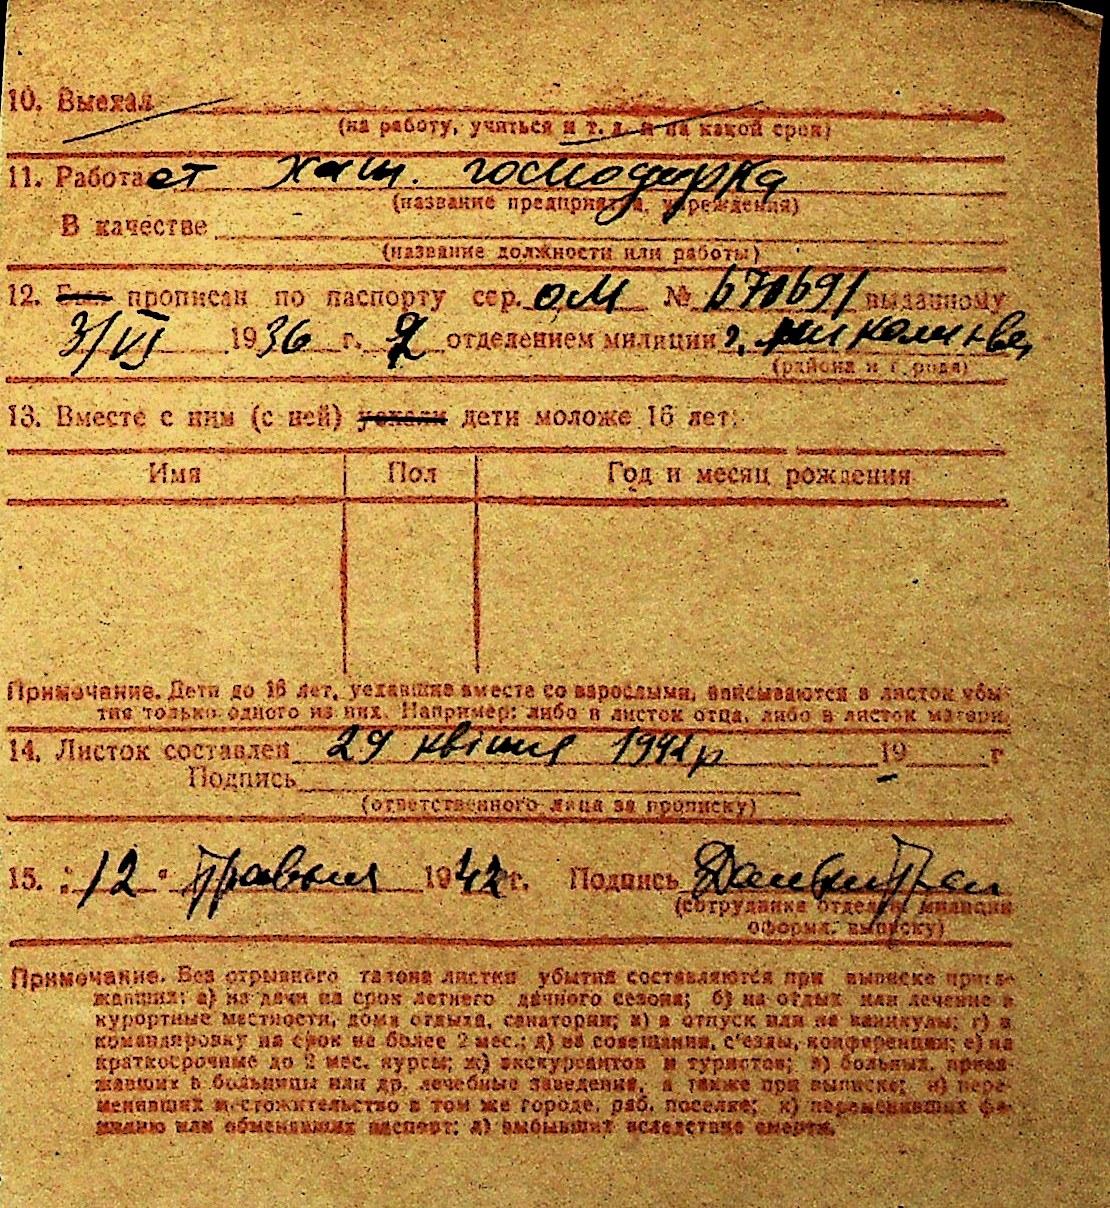 10. Выехал
(на работу, учиться и т. д. и на какой срок)
11. Работает хат. господарка
(название предприятия, учреждения)
В качестве
(название должности или работы)
12. прописан по паспорту сер. ОМ № 670691 выданному
3/VI 1936 г. 2 отделением милиции г.
(района и города)
13. Вместе с ним (с ней) уехали дети моложе 16 лет:
Имя Пол Год и месяц рождения
Примечание. Дети до 16 лет, уехавшие вместе со взрослыми, вписываются в листок убы-
тия только одного из них. Например: либо в листок отца, либо в листок матери.
14. Листок составлен 29 квітня 1942 р 19 г
Подпись
(ответственного лица за прописку)
15. "12" травня 1942 г. Подпись
(сотрудника отдела милиции
оформ. выписку)
Примечание. Без отрывного талона листки убытия составляются при выписке приез-
жавших: а) на дачи на срок летнего дачного сезона; б) на отдых или лечение в
курортные местности, дома отдыха, санатории; в) в отпуск или на каникулы; г) в
командировку на срок не более 2 мес.; д) на совещания, с'езды, конференции; е) на
краткосрочные до 2 мес. курсы; ж) экскурсантов и туристов; з) больных, приез-
жавших в больницы или др. лечебные заведения, а также при выписке; и) пере-
менивших местожительство в том же городе, раб. поселке; к) переменивших фа-
милию или обменявших паспорт; л) выбывших вследствие смерти.